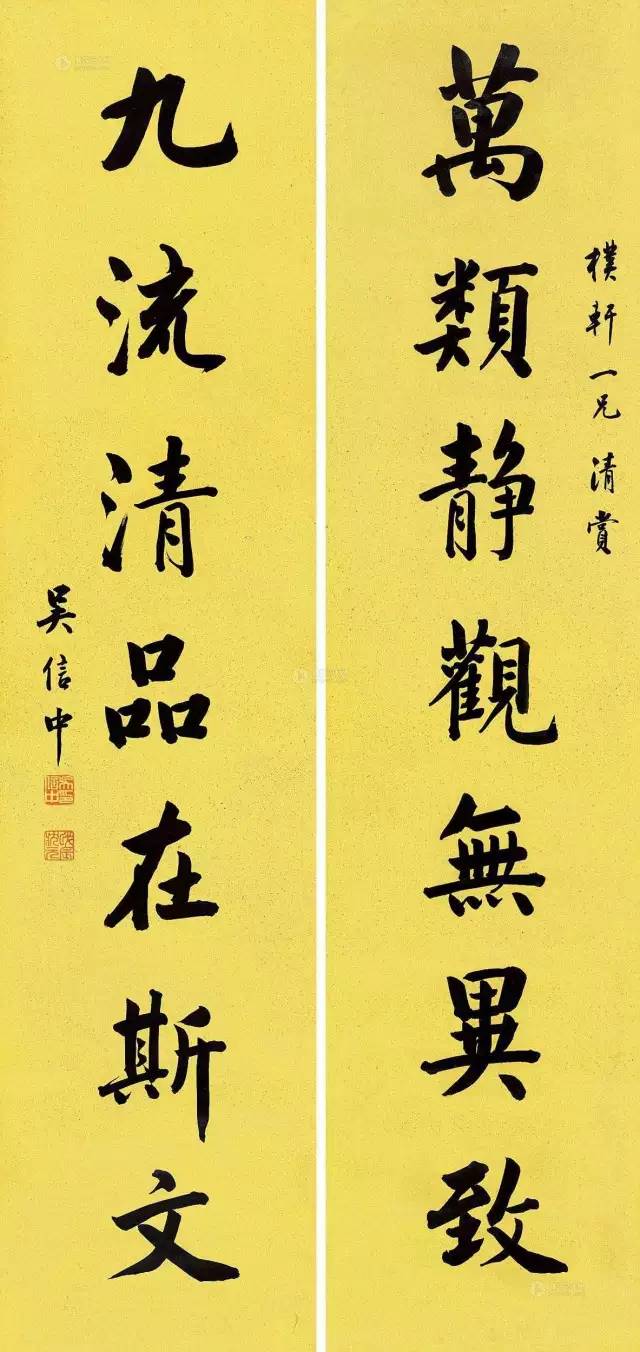 樸軒一兄清賞
萬類静觀無異致
九流清品在斯文
吴信中